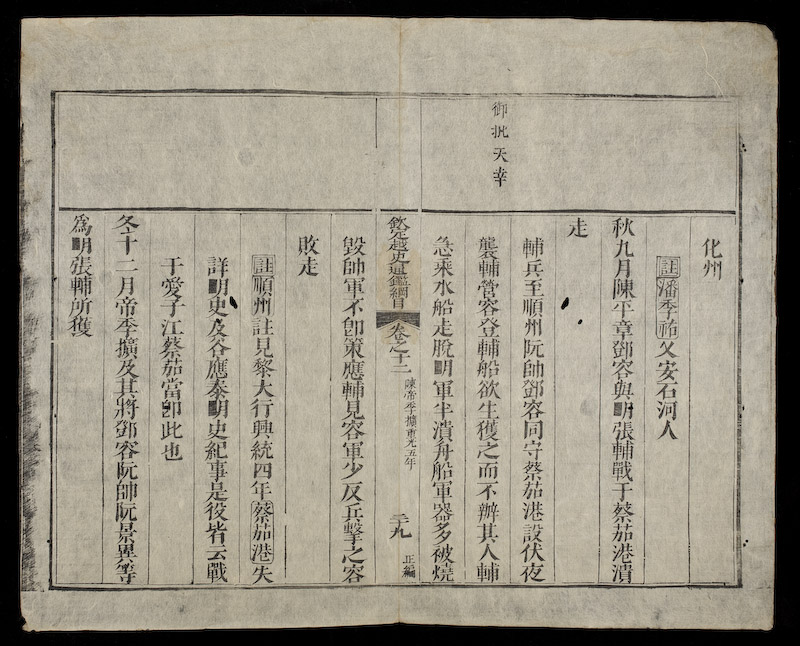 御批天幸
化州
註潘季祐乂安石河人
秋九月陳平章鄧容與明張輔戰于蔡茄港潰
走
輔兵至順州阮帥鄧容同守蔡茄港設伏夜
襲輔營容登輔船欲生獲之而不辦其人輔
急乘水船走脫明軍半潰舟船軍器多被燒
欽定越史通鑑綱目 卷之十二 陳帝季擴重光五年 二十九 正編
毀帥軍不卽策應輔見容軍少反兵擊之容
敗走
註順州註見黎大行興統四年蔡茄港失
詳明史及谷應泰明史紀事是役皆云戰
于愛子江蔡茄當卽此也
冬十二月帝季擴及其將鄧容阮帥阮景異等
爲明張輔所獲